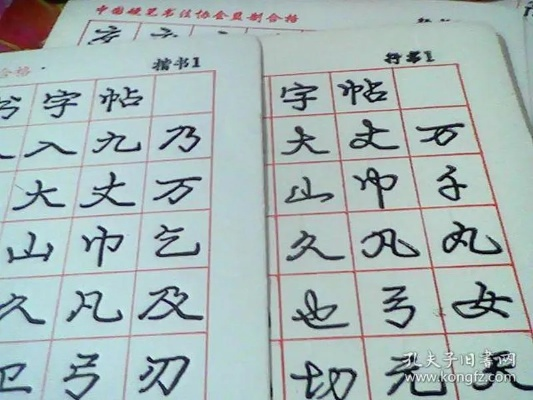 中国硬笔书法协会监制合格
合格 楷书1
字帖
入九乃
大丈万
山巾乞
久凡及
卫弓刃
行书1
字帖
大丈万
山巾子
久凡丸
也弓女
切元天
孔夫子旧书网
www.kongfz.com